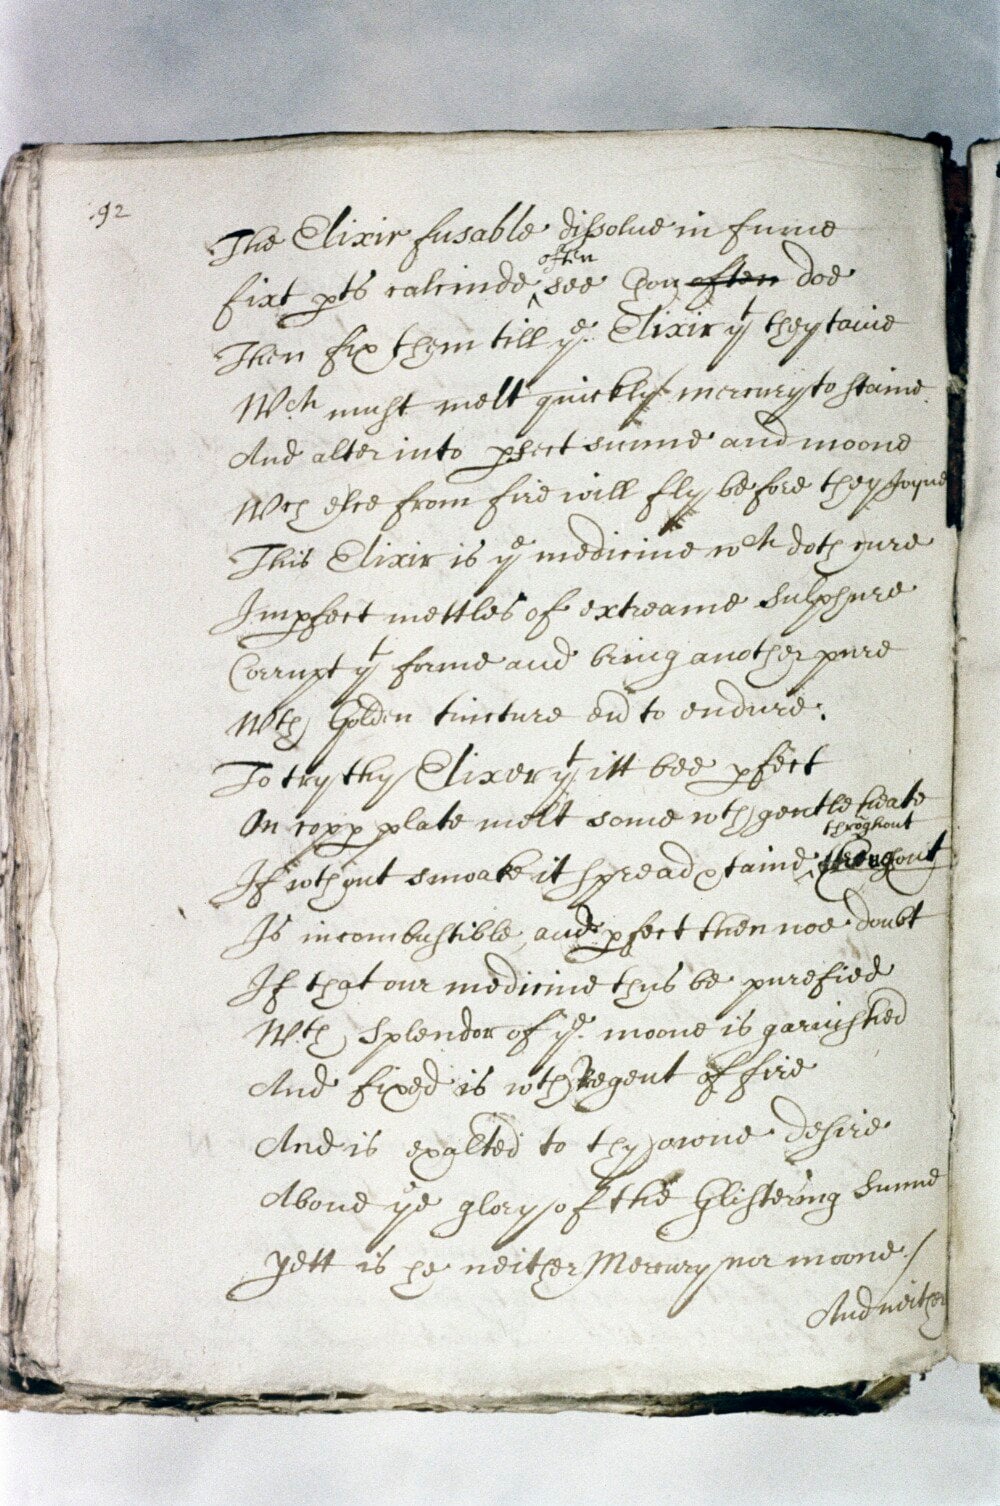 92
The Elixir fusable dissolue in fume
often
fixt pts calcinde ^ see thou often doe
Then fix them till ye Elixir yt they taine
Wch must melt quickly mercury to staine
And alter into pfect sunne and moone
Wch else from fire will fly before they Joyne
This Elixir is ye medicine wch doth cure
Impfect mettles of extreame sulphure
Corrupt yt forme and bring another pure
Wth Golden tincture to endure.
To try thy Elixer yt itt bee pfect
On copp plate melt some wth gentle heate
throghout
If wthout smoake it spread taine ^ throughout
Is incombustible and pfect then noe doubt
If that our medicine thus be purefied
Wth splendor of ye moone is garnished
And fixed is wth Regent of fire
And is exalted to thy owne desire
Aboue ye glory of the Glistering sunne
Yett is he neither Mercury nor moone /
And neither